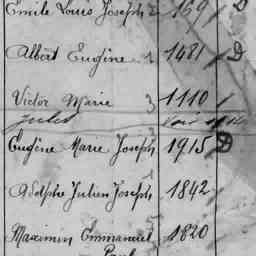 Emile Louis Joseph 2 169 D
Albert Eugène 1 1481 D
Victor Marie 3 1110
Jules Voir
Eugène Marie Joseph 1915 D
Adolphe Julien Joseph 1 1842
Maximin Emmanuel 5 1820
Paul